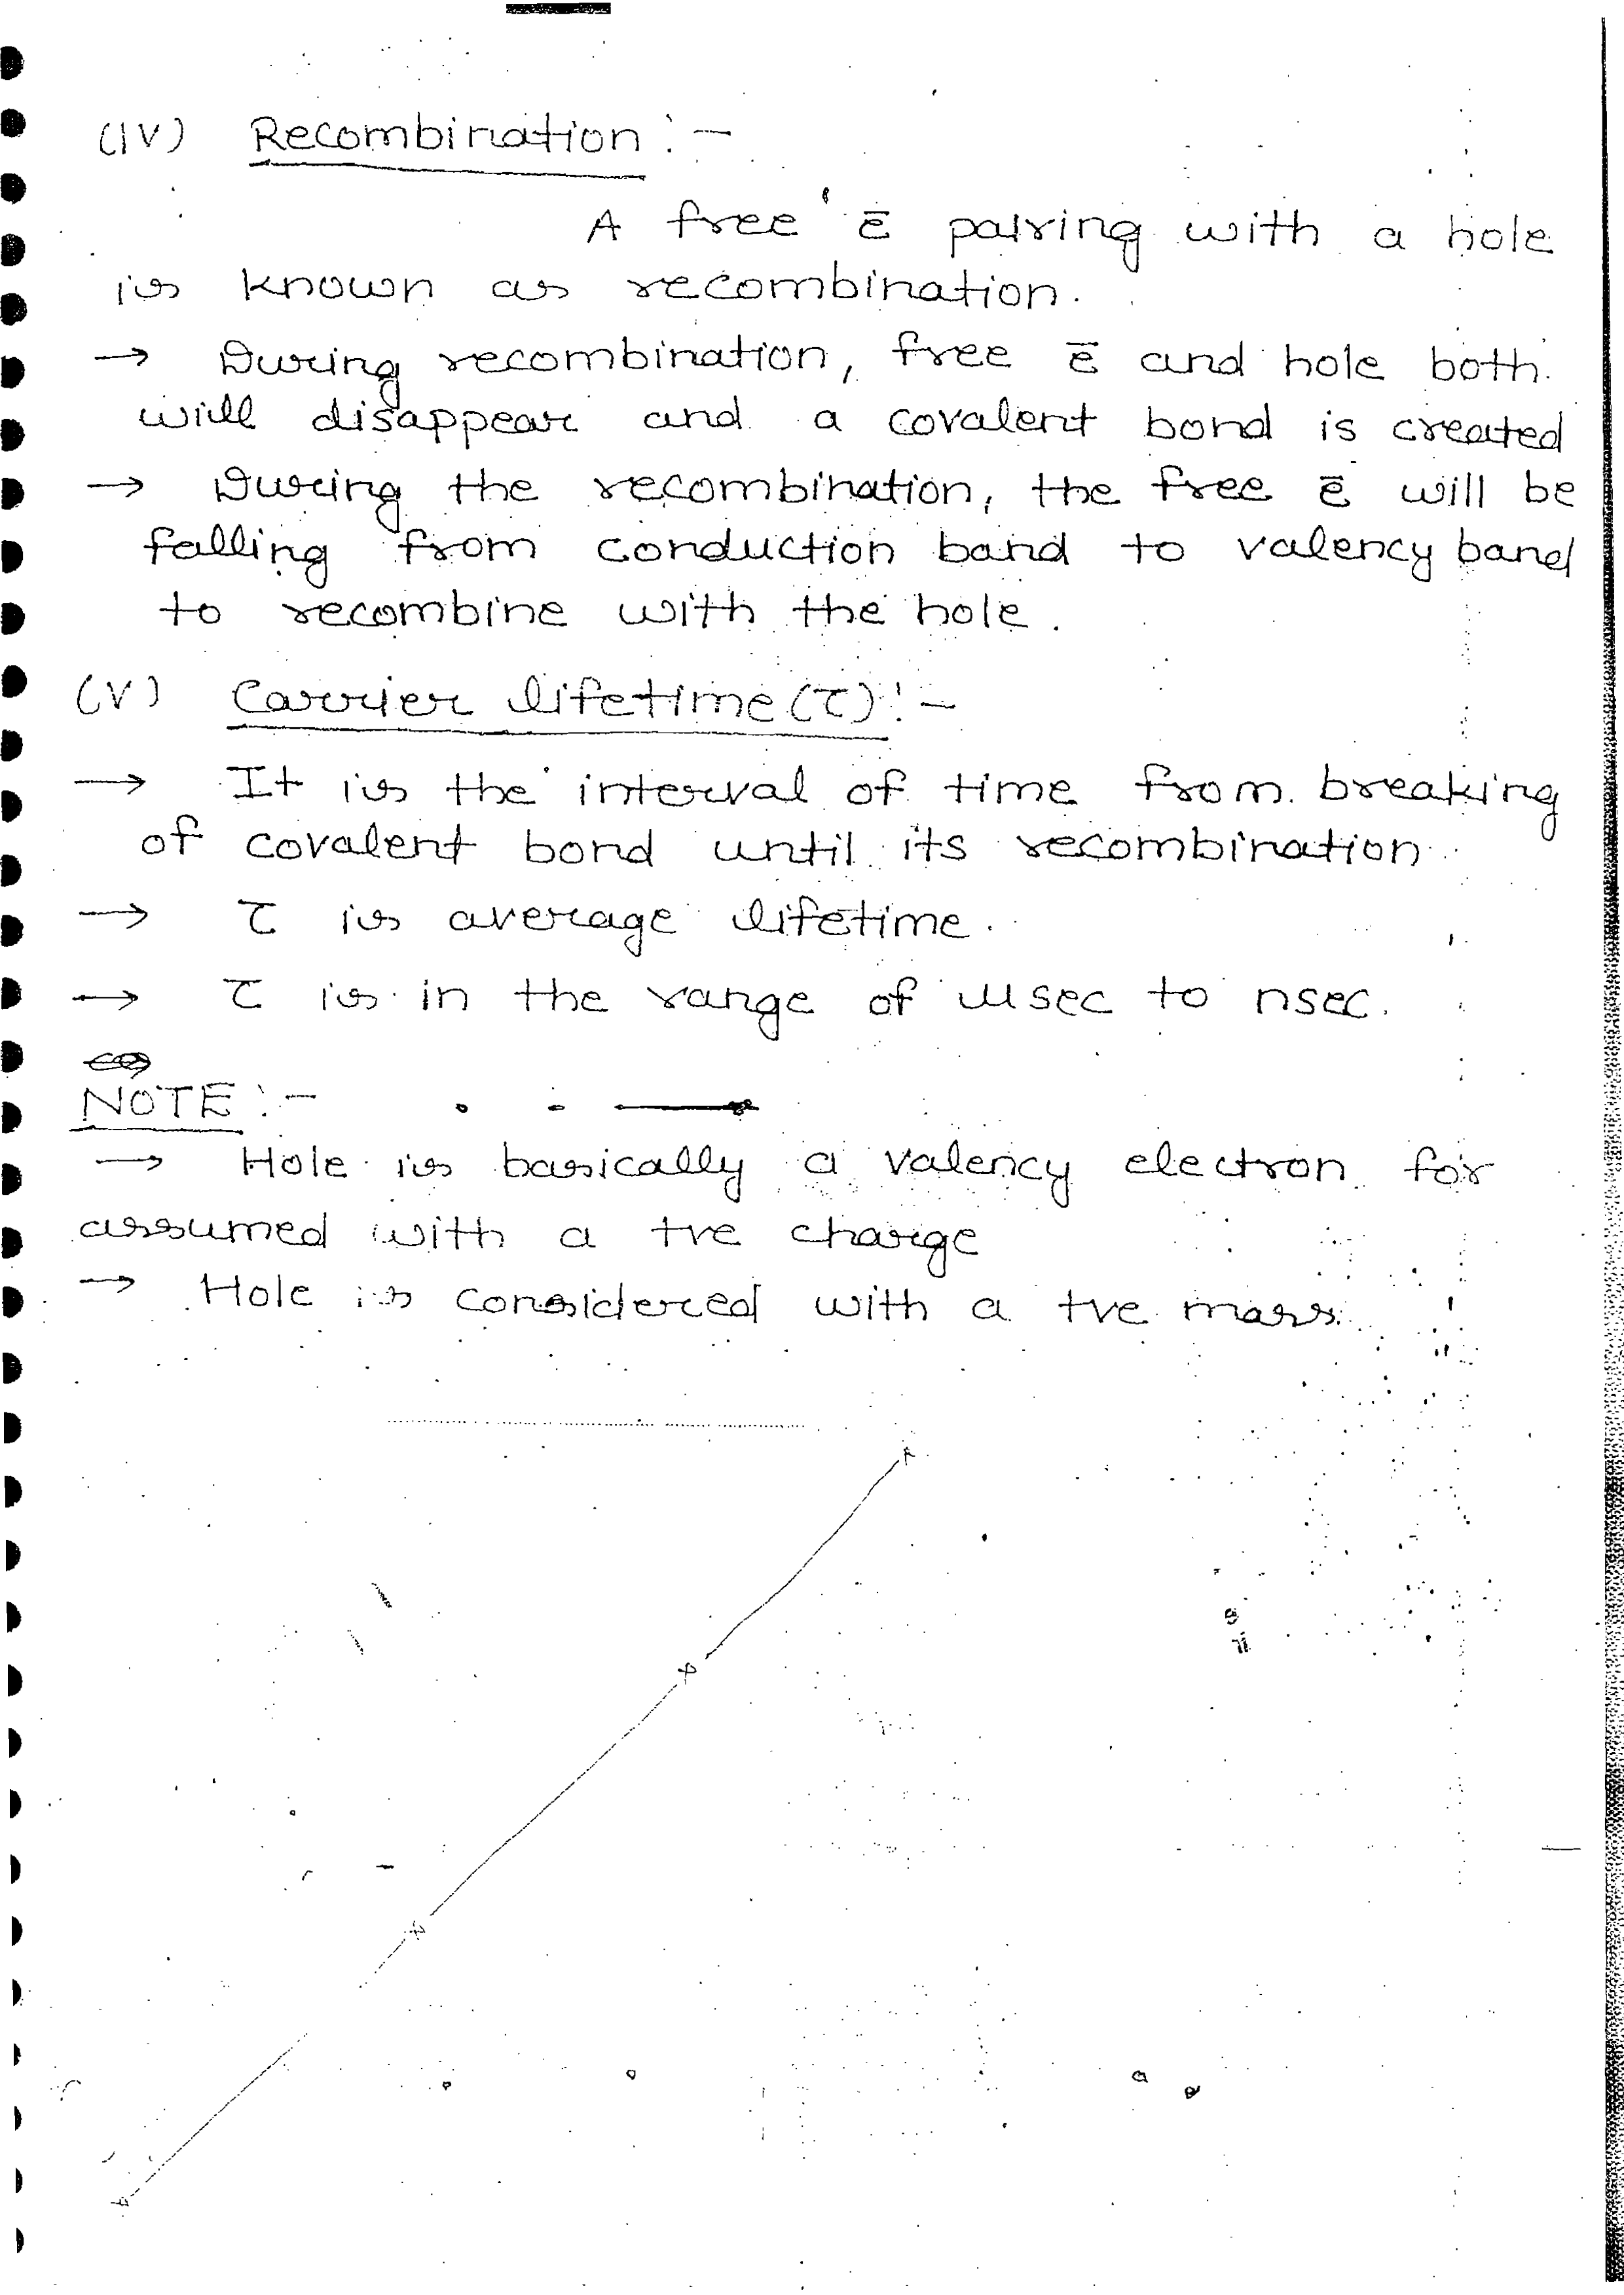 (IV) Recombination :-
A free ē pairing with a hole
is known as recombination.
→ During recombination, free ē and hole both
will disappear and a covalent bond is created
→ During the recombination, the free ē will be
falling from conduction band to valency band
to recombine with the hole.
(V) Carrier lifetime (τ) :-
→ It is the interval of time from breaking
of covalent bond until its recombination
→ τ is average lifetime.
→ τ is in the range of μsec to nsec.
NOTE :-
→ Hole is basically a valency electron for
assumed with a +ve charge
→ Hole is considered with a +ve mass.